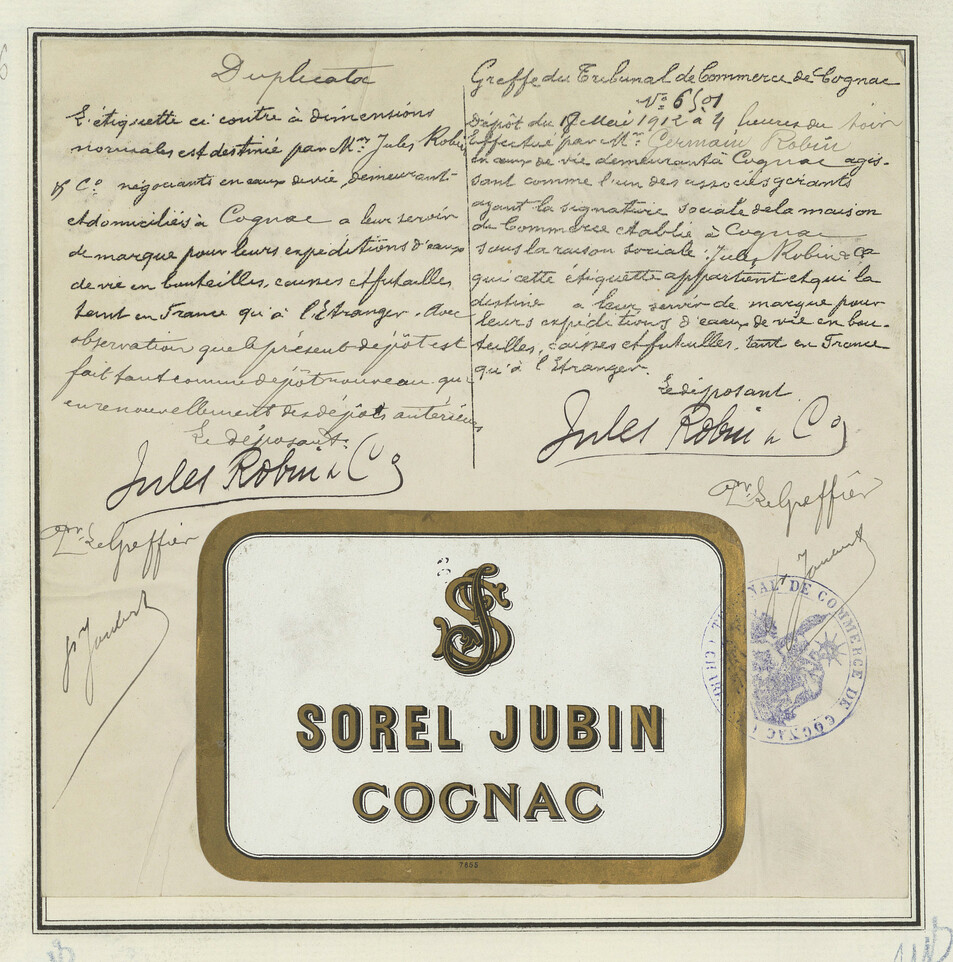 Duplicata
L'étiquette ci contre à dimensions
normales est destinée par Mr Jules Robin
& Co négociants en eaux de vie, demeurant
et domiciliés à Cognac a leur servir
de marque pour leurs expéditions d'eaux
de vie en bouteilles, caisses et futailles
tant en France qu'à l'Etranger. Avec
observation que le présent dépôt est
fait tant comme dépôt nouveau que
en renouvellement des dépôts antérieurs
Le déposant.
Jules Robin & Co
pr Le Greffier
Greffe du Tribunal de Commerce de Cognac
No 6501
Dépôt du 17 Mai 1912 à 4 heures du soir
Effectué par Mr Germain Robin
en eaux de vie demeurant à Cognac agis-
sant comme l'un des associés gérants
ayant la signature sociale de la maison
de Commerce établie à Cognac
sous la raison sociale: Jules Robin & Ca
qui cette étiquette appartient et qui la
destine a leur servir de marque pour
leurs expéditions d'eaux de vie en bou-
teilles, caisses et futailles, tant en France
qu'à l'Etranger.
Le déposant
Jules Robin & Co
pr Le Greffier
TRIBUNAL DE COMMERCE DE COGNAC
SJ
SOREL JUBIN
COGNAC
7653